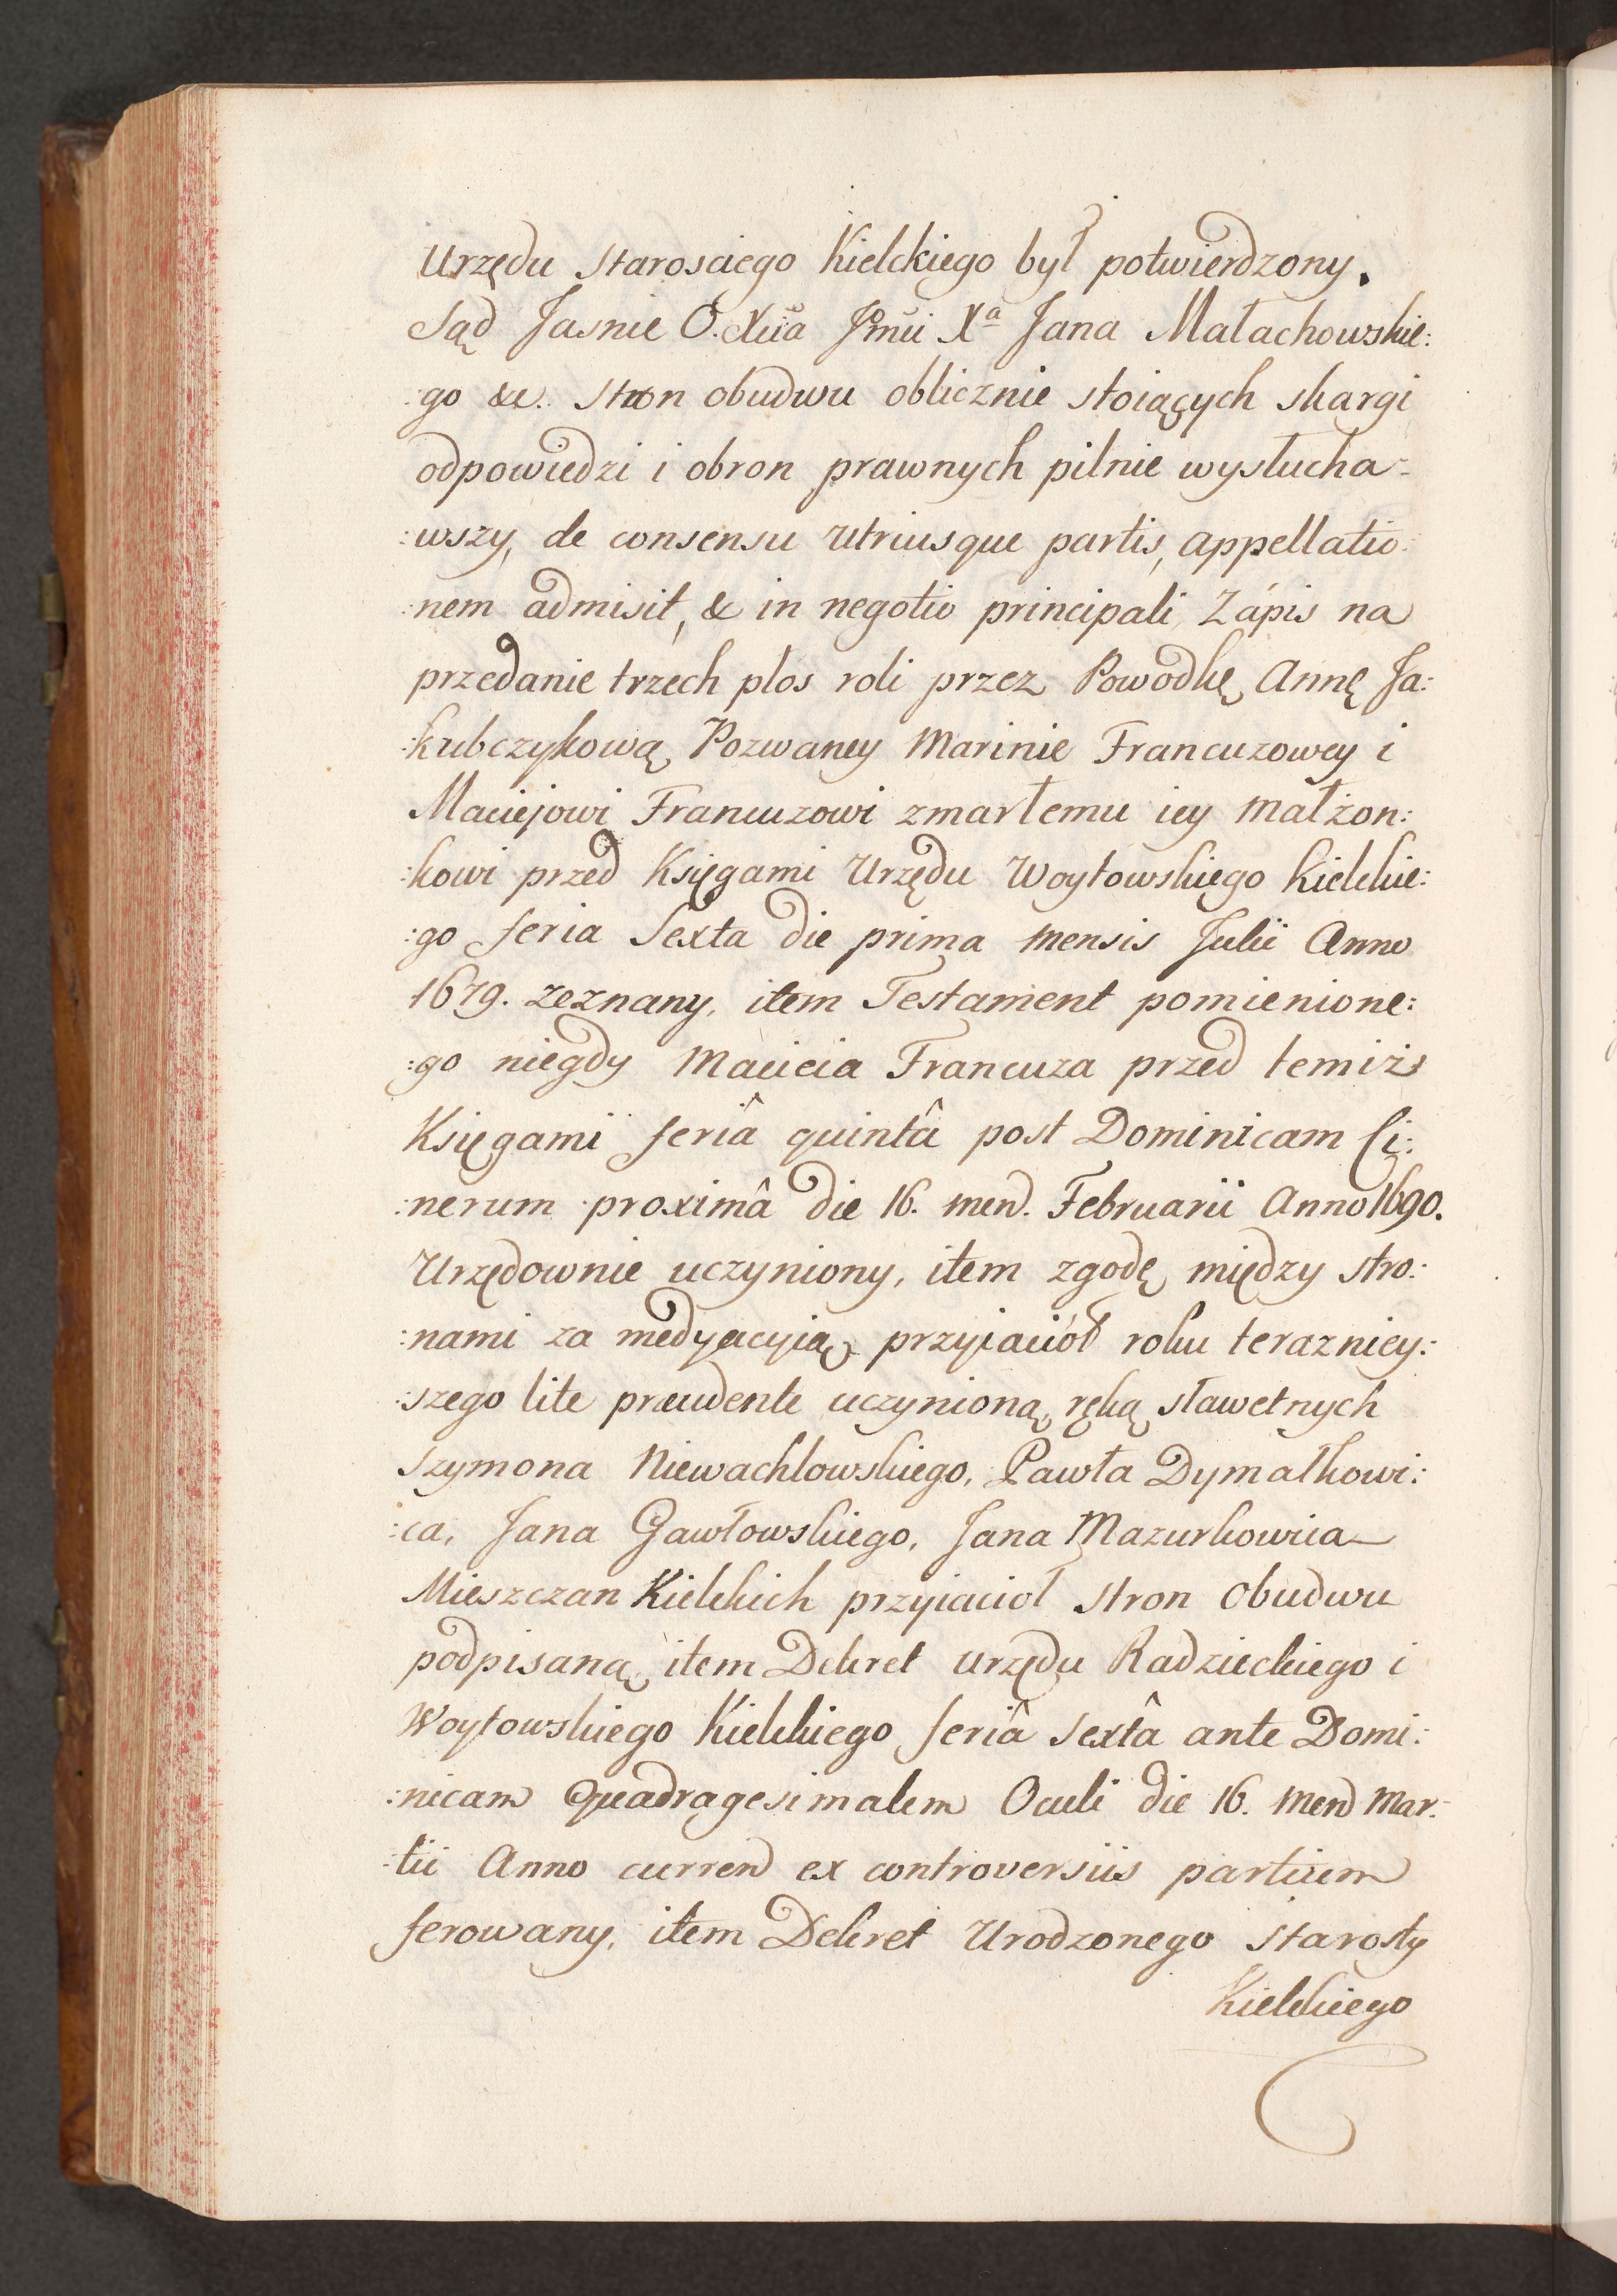 Urzędu Starosciego Kielckiego był potwierdzony.
Sąd Jasnie O. Xcia Jmci Xa Jana Małachowskie:
:go &c. Stron obudwu oblicznie stoiących skargi
odpowiedzi i obron prawnych pilnie wysłucha-
:wszy, de consensu utriusque partis, appellatio:
:nem admisit, & in negotio principali Zápis na
przedanie trzech płos roli przez Powodkę Annę Ja:
:kubczykową Pozwaney Marinie Francuzowey i
Maciejowi Francuzowi zmarłemu iey małżon:
:kowi przed Księgami Urzędu Woytowskiego Kielckie:
:go feria Sexta die prima mensis Julii Anno
1679. zeznany, item Testament pomienione:
:go niegdy Macieia Francuza przed temiż
Księgami feriâ quintâ post Dominicam Ci:
:nerum proximâ die 16. mens. Februarii Anno 1690.
Urzędownie uczyniony, item zgodę między stro:
:nami za medyacyią przyiaciół roku terazniey:
:szego lite praeudente uczynioną, ręką sławetnych
Szymona Niewachlowskiego, Pawła Dymałkowi:
:ca, Jana Gawłowskiego, Jana Mazurkowica
Mieszczan Kielckich przyiacioł stron obudwu
podpisaną, item Dekret urzędu Radzieckiego i
Woytowskiego Kielckiego feriâ sextâ ante Domi:
:nicam Quadragesimalem Oculi die 16. mens Mar:
:tii Anno curren ex controversiis partium
ferowany, item Dekret Urodzonego Starosty
Kielckiego